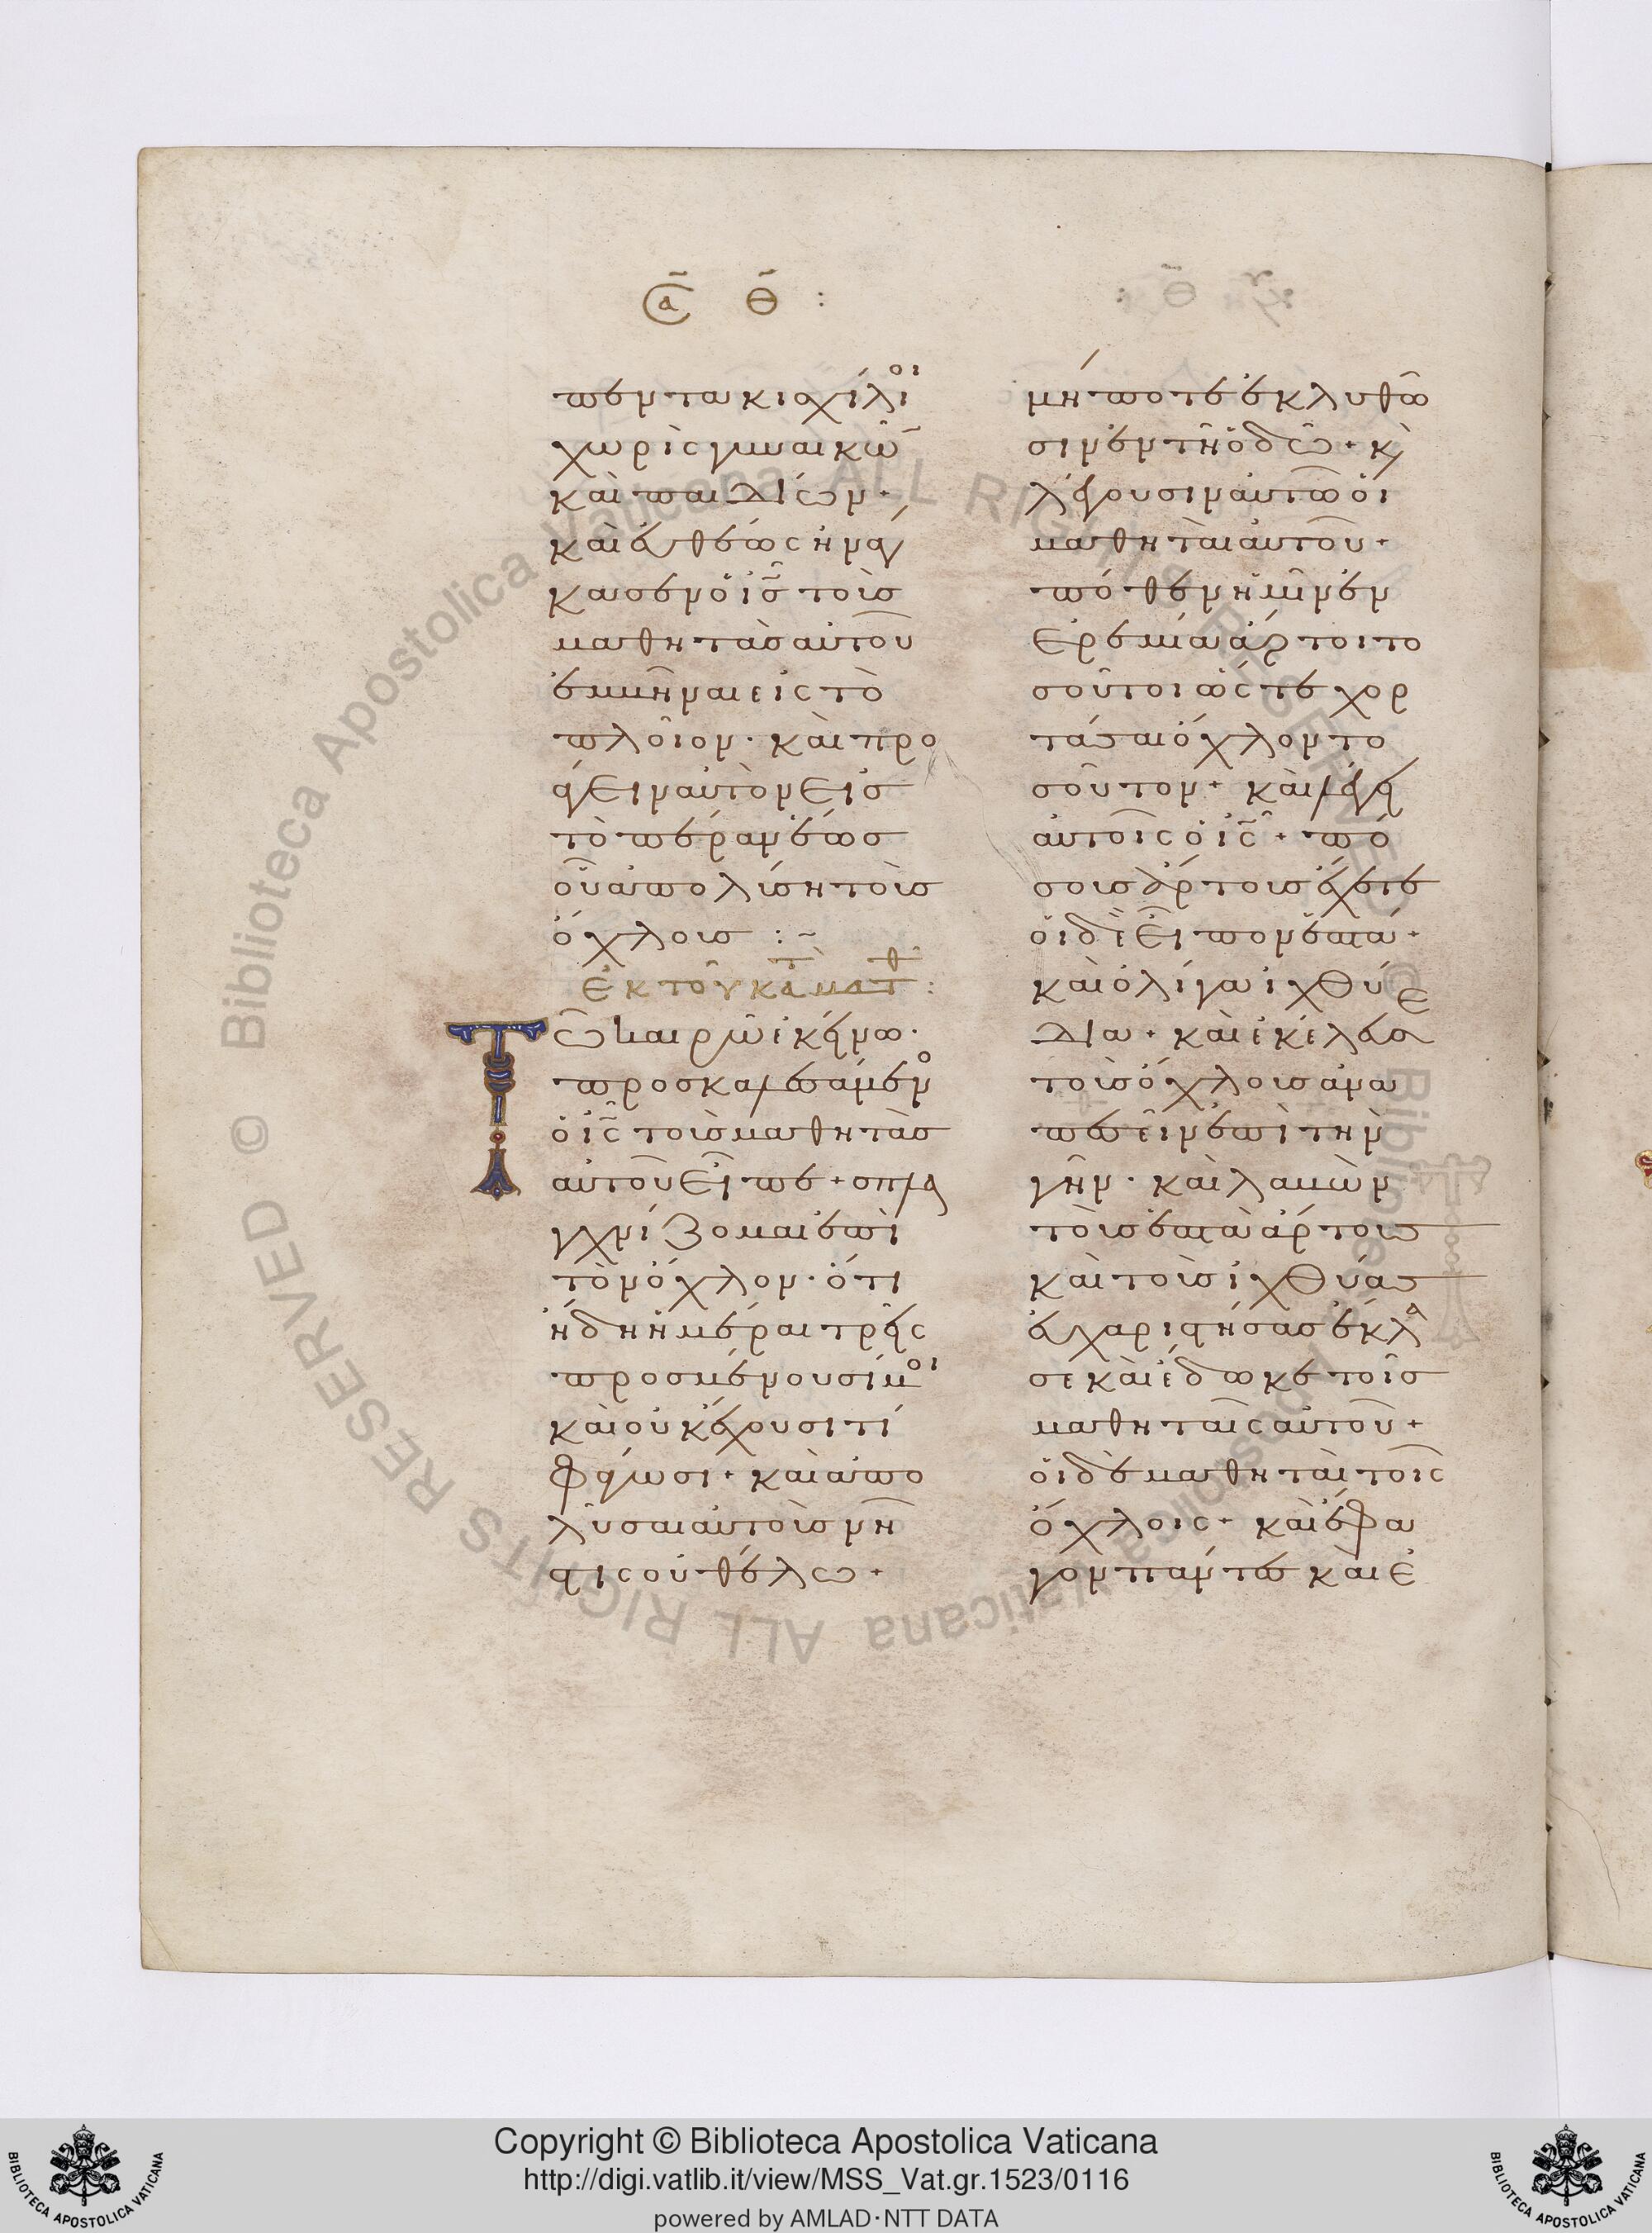 Cᾱ Θ̄ :
πεντακισχίλιοι
χωρὶς γυναικῶ̄
καὶ παιδίων·
καὶ εὐθέως ἠνάγ
κασεν ὁ ῑς̄ τοὺς
μαθητὰς αὐτοῦ
ἐμβῆναι εἰς τὸ
πλοῖον· καὶ προ
άγειν αὐτὸν εἰς
τὸ πέραν ἕως
οὗ ἀπολύσῃ τοὺς
ὄχλους :~
ἐκ τοῦ κατὰ ματθ :
Τῶ καιρῶ ἐκείνω·
προσκαλεσάμενο
ὁ ῑς̄ τοὺς μαθητὰς
αὐτοῦ εἶπε + σπλα
γχνίζομαι ἐπὶ
τὸν ὄχλον· ὅτι
ἤδη ἡμέραι τρεῖς
προσμένουσί μοι
καὶ οὐκ ἔχουσι τί
φάγωσι + καὶ ἀπο
λῦσαι αὐτοὺς νή
στις οὐ θέλω +
μήποτε ἐκλυθῶ
σιν ἐν τῆ ὁδῶ + κ̀
λέγουσιν αὐτῶ οἱ
μαθηταὶ αὐτοῦ +
πόθεν ἡμῖν ἐν
ἐρημία ἄρτοι το
σοῦτοι ὥστε χορ
τάσαι ὄχλον το
σοῦτον + καὶ λέγει
αὐτοῖς ὁ ῑς̄ + πό
σους ἄρτους ἔχετε
οἱ δὲ εἶπον ἑπτά +
καὶ ὀλίγα ἰχθύ
δια + καὶ ἐκέλευσε
τοὺς ὄχλους ἀνα
πεσεῖν ἐπὶ τὴν
γῆν· καὶ λαβὼν
τοὺς ἑπτὰ ἄρτους
καὶ τοὺς ἰχθύας
εὐχαριστήσας ἔκλα
σε καὶ ἔδωκε τοῖς
μαθηταῖς αὐτοῦ +
οἱ δὲ μαθηταὶ τοῖς
ὄχλοις + καὶ ἔφα
γον πάντες καὶ ἐ
Copyright © Biblioteca Apostolica Vaticana
http://digi.vatlib.it/view/MSS_Vat.gr.1523/0116
powered by AMLAD·NTT DATA
BIBLIOTECA APOSTOLICA VATICANA
BIBLIOTECA APOSTOLICA VATICANA